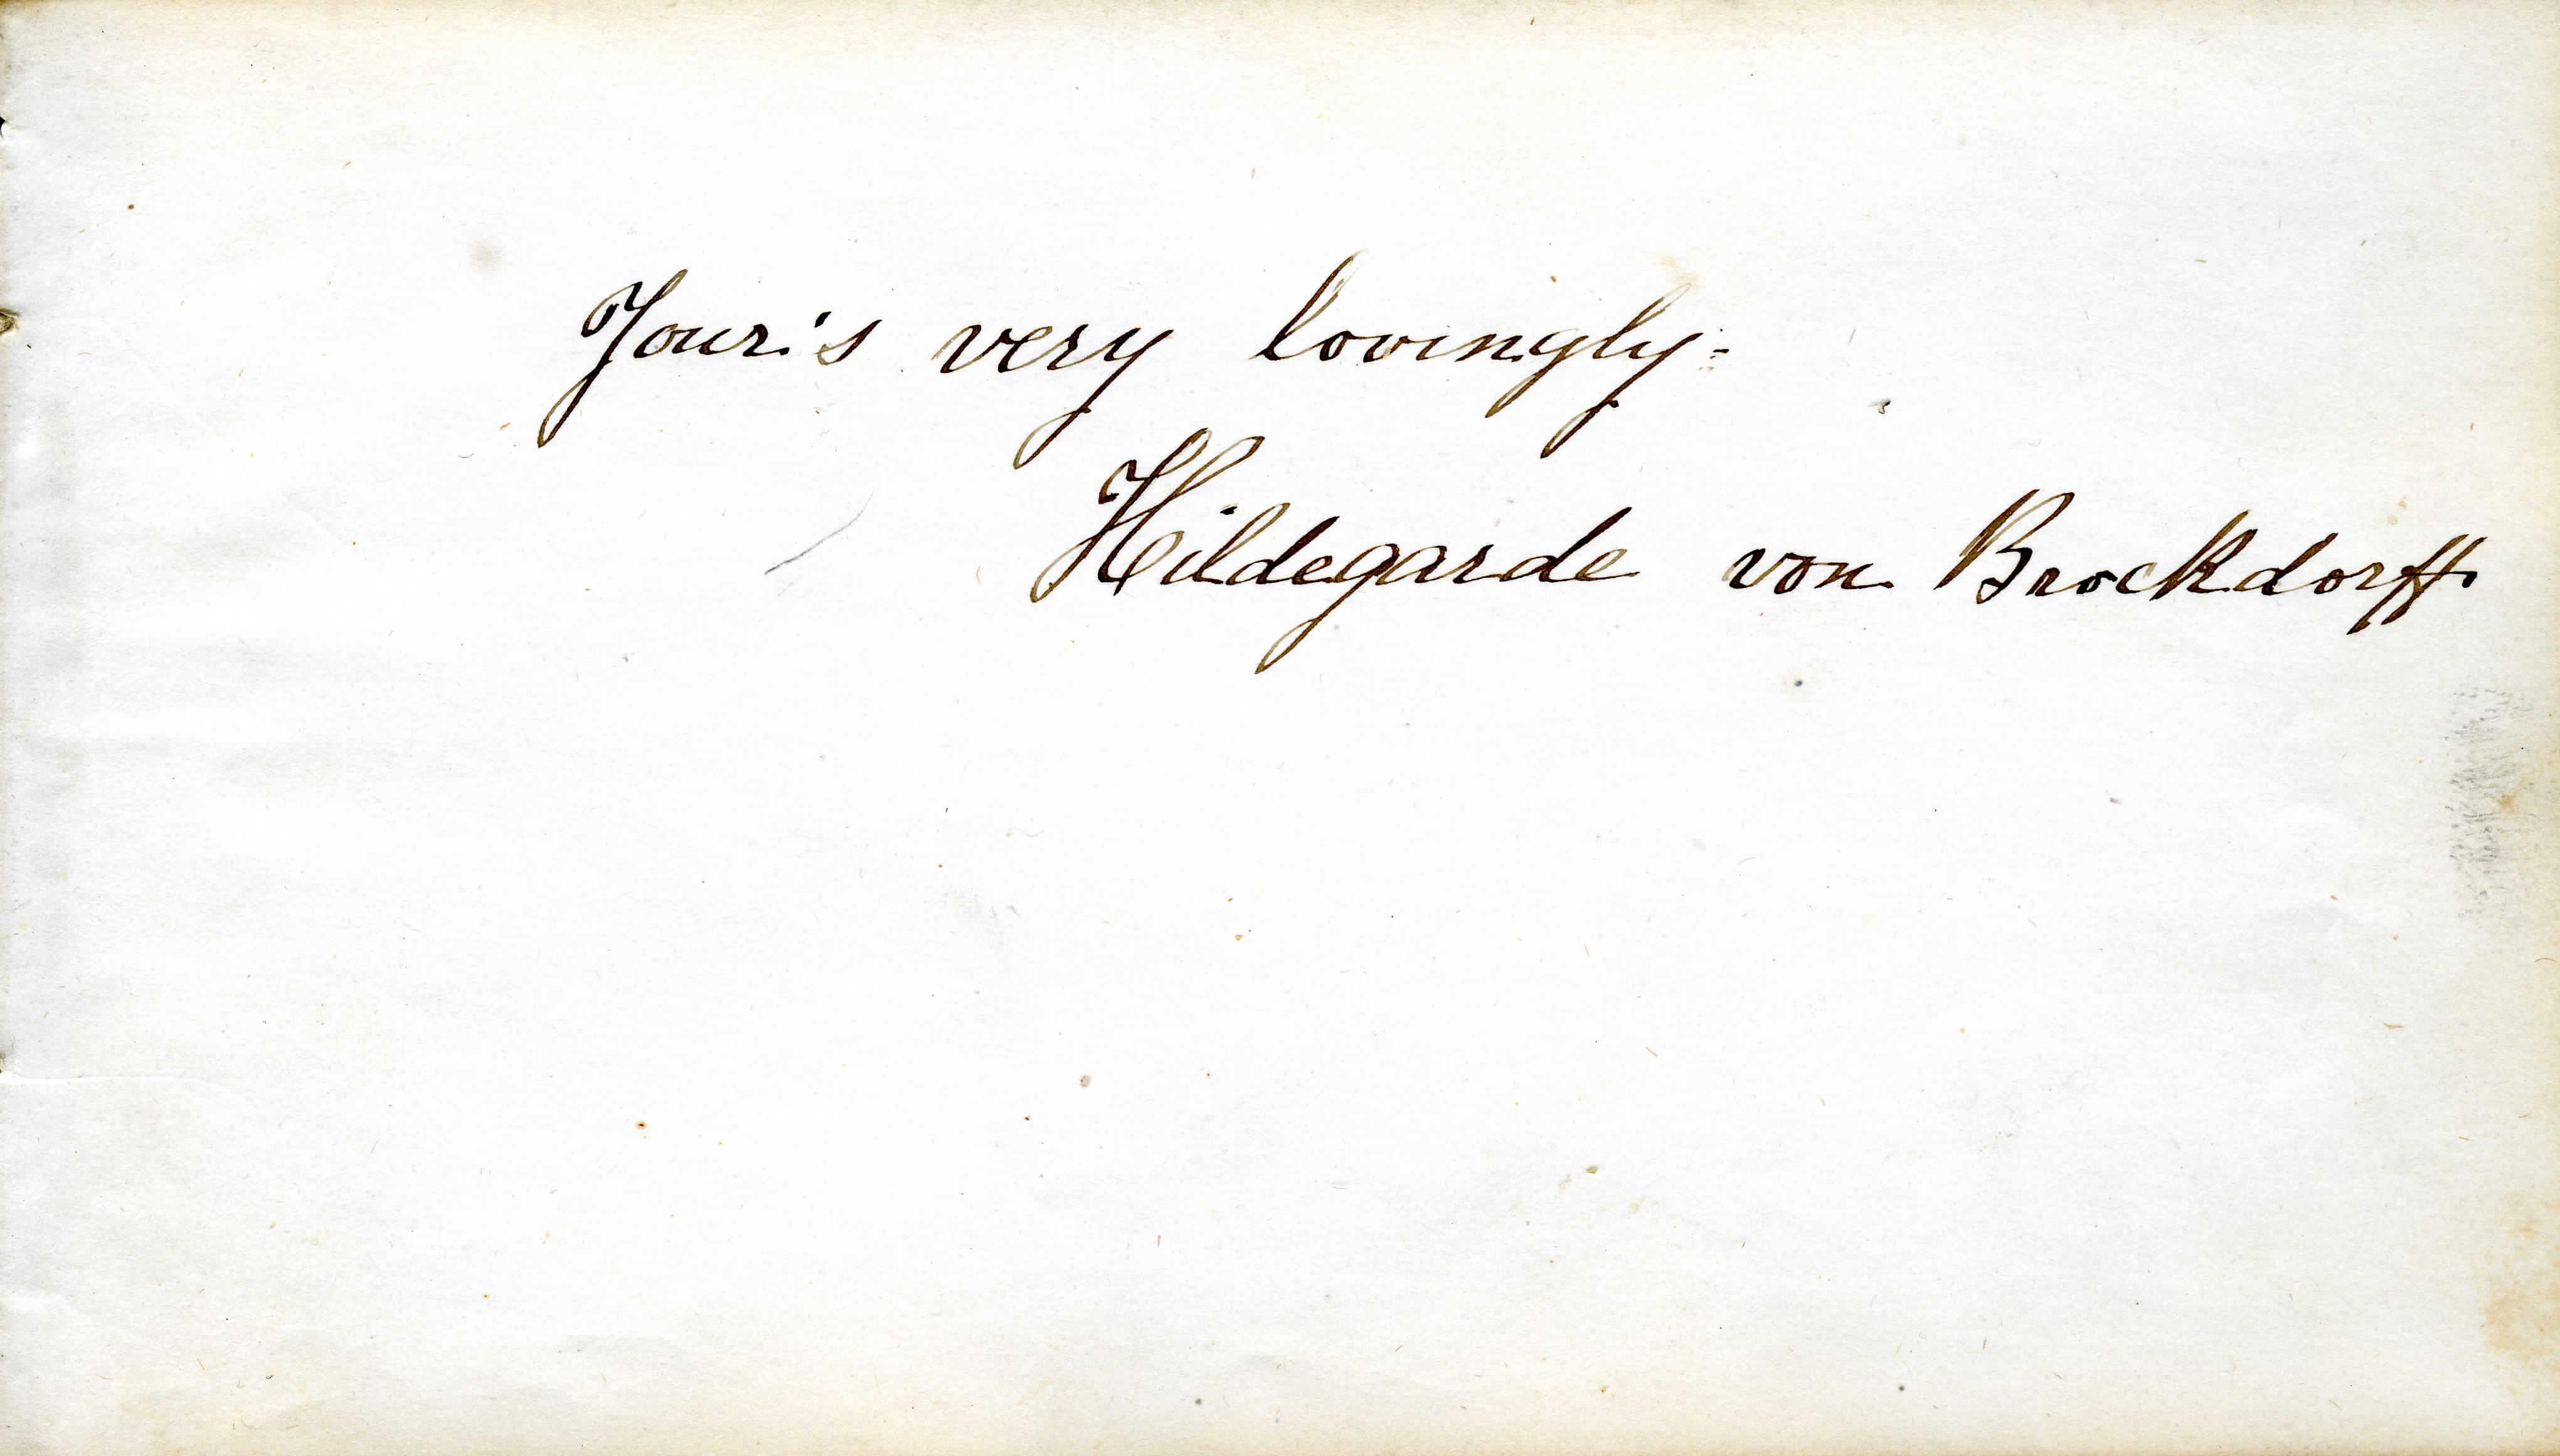 Your's very lovingly-
Hildegarde von Brockdorff.